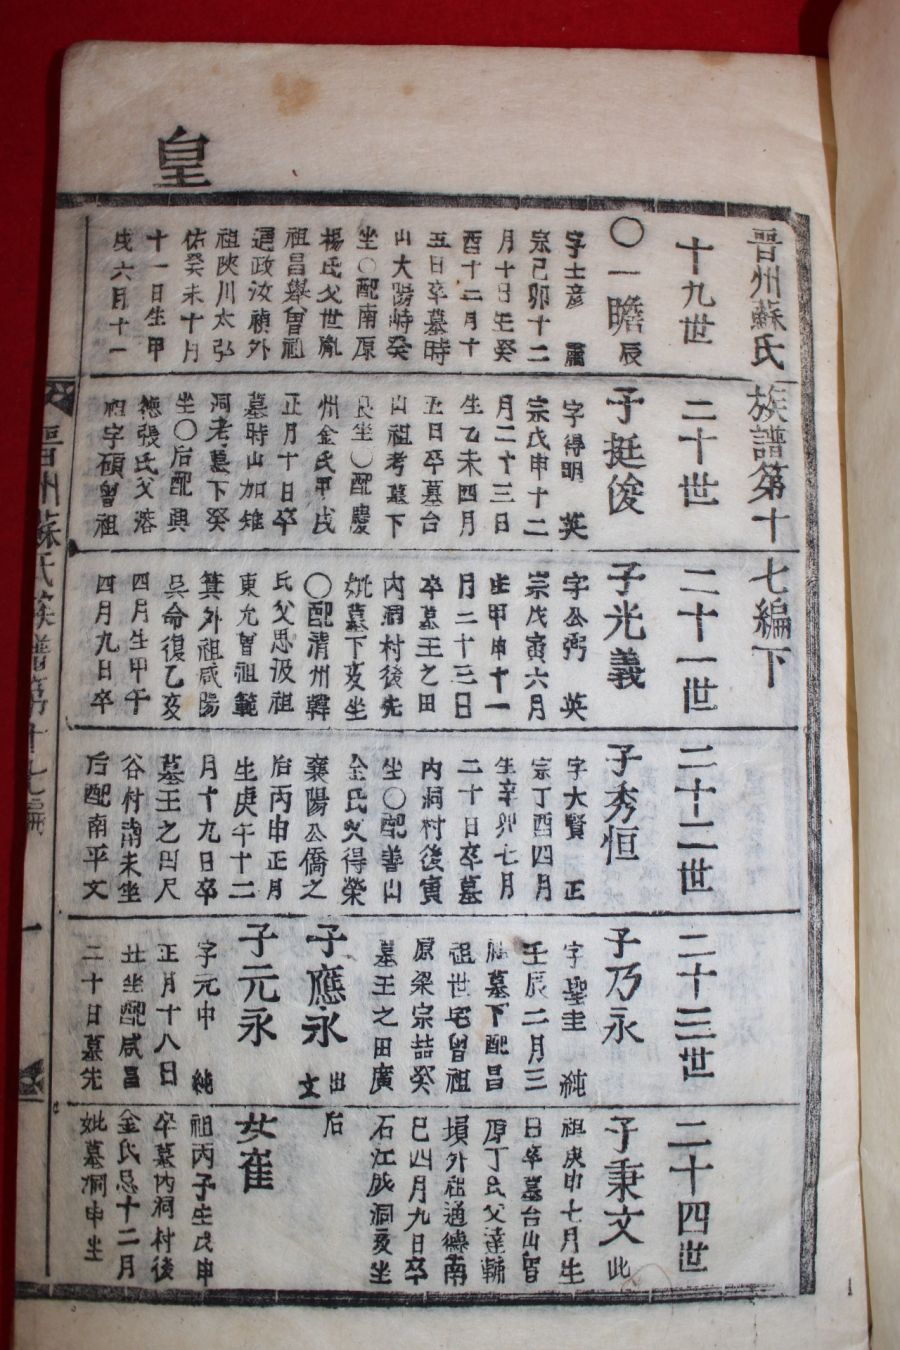 皇
晋州蘇氏族譜第十七編下
十九世
〇一瞻 辰
字士彦 肅
宗己卯十二
月十日生癸
酉十二月十
五日卒墓時
山大陽峙癸
坐〇配南原
楊氏父世胤
祖昌擧曾祖
通政汝禎外
祖陜川太弘
佑癸未十月
十一日生甲
戌六月十一
二十世
子挺俊
字得明 英
宗戊申十二
月二十三日
生乙未四月
五日卒墓台
山祖考墓下
艮坐〇配慶
州金氏甲戌
正月十日卒
墓時山加雉
洞考墓下癸
坐〇后配興
德張氏父落
祖字碩曾祖
二十一世
子光義
字公弼 英
宗戊寅六月
生甲申十一
月二十三日
卒墓王之田
內洞村後先
妣墓下亥坐
〇配清州韓
氏父思汲祖
東允曾祖範
箕外祖咸陽
吳命復乙亥
四月生甲午
四月九日卒
二十二世
子秀恒
字大賢 正
宗丁酉四月
生辛卯七月
二十日卒墓
內洞村後寅
坐〇配善山
金氏父得榮
襄陽公僑之
后丙申正月
生庚午十二
月十九日卒
墓王之田尺
谷村南未坐
后配南平文
二十三世
子乃永
字聖圭 純
壬辰二月三
墓下配昌
祖世宅曾祖
原梁宗喆癸
墓王之田廣
子應永 出 文
子元永
字元中 純
正月十八日
丑坐配咸昌
二十日墓先
二十四世
子秉文 此
祖庚申七月生
日卒墓台山曾
原丁氏父達
墳外祖通德南
巳四月九日卒
石江成洞亥坐
后
女崔
祖丙子生戊申
卒墓內洞村後
金氏忌十二月
妣墓洞申坐
晋州蘇氏族譜第十七編
一